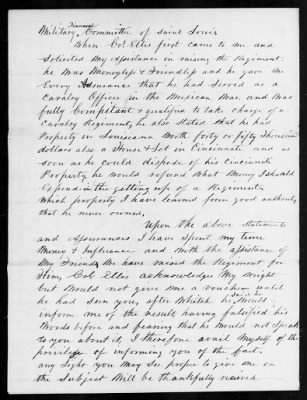 Military Finance Committee of Saint Louis
When Col. Ellis first came to me and
Solicited My Assistance in raising the Regiment.
he Was Moneyless & Friendless and he gave me
Every Assurance that he had Served as a
Cavalry Officer in the Mexican War and Was
fully Competant & qualified to take charge of a
Cavalry Regiment, he also Stated that he had
Property in Louisiana Worth forty or fifty Thousand
dollars also a House & Lot in Cincinnati and as
soon as he could dispose of his Cincinnati
Property he would refund What Money I should
Expend in the getting up of a Regiment.
Which property I have learned from good authority
that he never owned,
Upon the above Statements
and Assurances I have spent my time
Money & Influence and With the assistance of
My Friends We have raised the Regiment for
Him, Col Ellis acknowledges My Wright
but Would not give me a until
he had Seen you, after Which he Would
inform me of the result having falsified his
Words before and fearing that he Would not Speak
to you about it, I therefore avail Myself of the
privilege of informing you of the fact.
any light you May See proper to give me on
the Subject Will be thankfully received